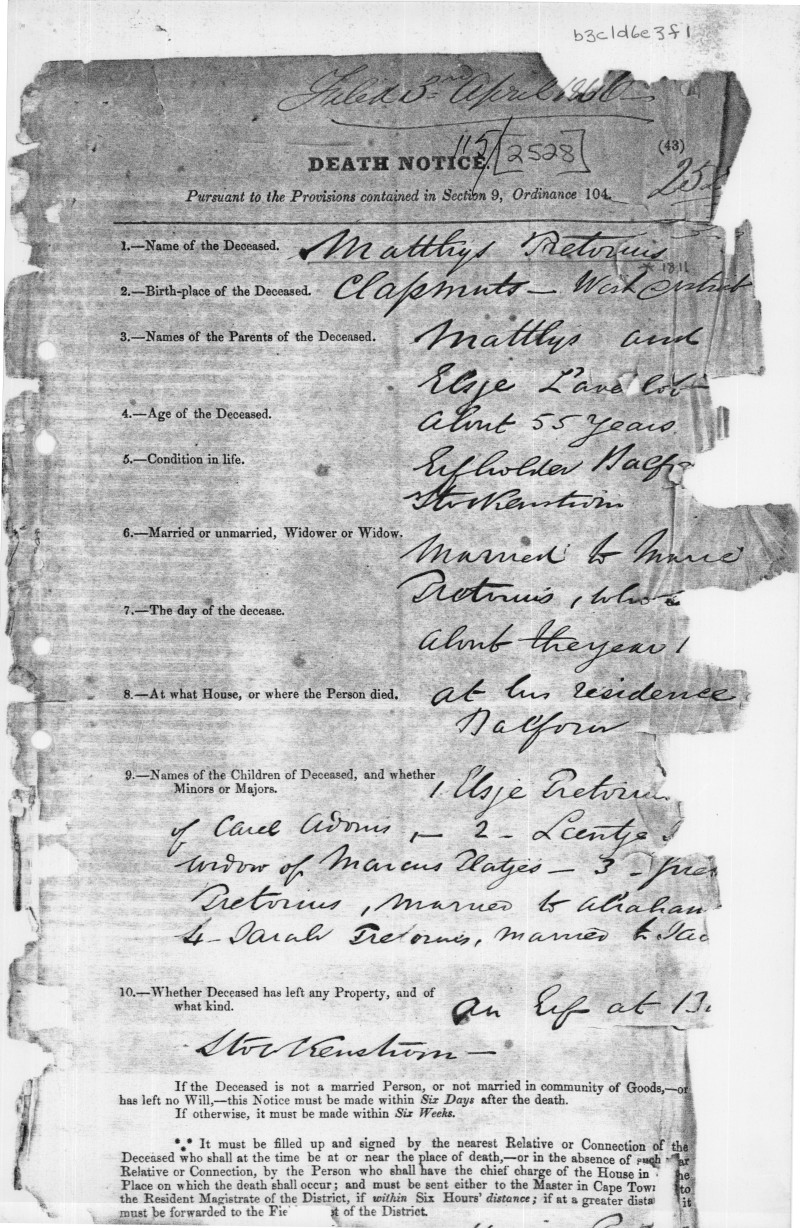 b3c1d6e3f1
Filed 3rd April 1866
115/ [2528]
(43)
DEATH NOTICE.
252
Pursuant to the Provisions contained in Section 9, Ordinance 104.
1.—Name of the Deceased. Matthys Pretorius
1811
2.—Birth-place of the Deceased. Clapmuts — West District
3.—Names of the Parents of the Deceased. Matthys and
Elsje
4.—Age of the Deceased. About 55 years
5.—Condition in life. Erfholder Balfo
Stockenstrom
6.—Married or unmarried, Widower or Widow. Married to Marie
Pretorius, who
7.—The day of the decease.
about the year 1
8.—At what House, or where the Person died. at his residence
Balfour
9.—Names of the Children of Deceased, and whether
Minors or Majors. 1. Elsje Pretorius
of Carel Adoms, — 2 — Leentje
widow of Marcus Platjes — 3 —
Pretorius, married to Abraham
4 — Sarah Pretorius, married to
10.—Whether Deceased has left any Property, and of
what kind. an Erf at
Stockenstrom —
If the Deceased is not a married Person, or not married in community of Goods,—or
has left no Will,—this Notice must be made within Six Days after the death.
If otherwise, it must be made within Six Weeks.
*⁎* It must be filled up and signed by the nearest Relative or Connection of the
Deceased who shall at the time be at or near the place of death,—or in the absence of such
Relative or Connection, by the Person who shall have the chief charge of the House in
Place on which the death shall occur; and must be sent either to the Master in Cape Tow
the Resident Magistrate of the District, if within Six Hours' distance; if at a greater dista it
must be forwarded to the Fie t of the District.